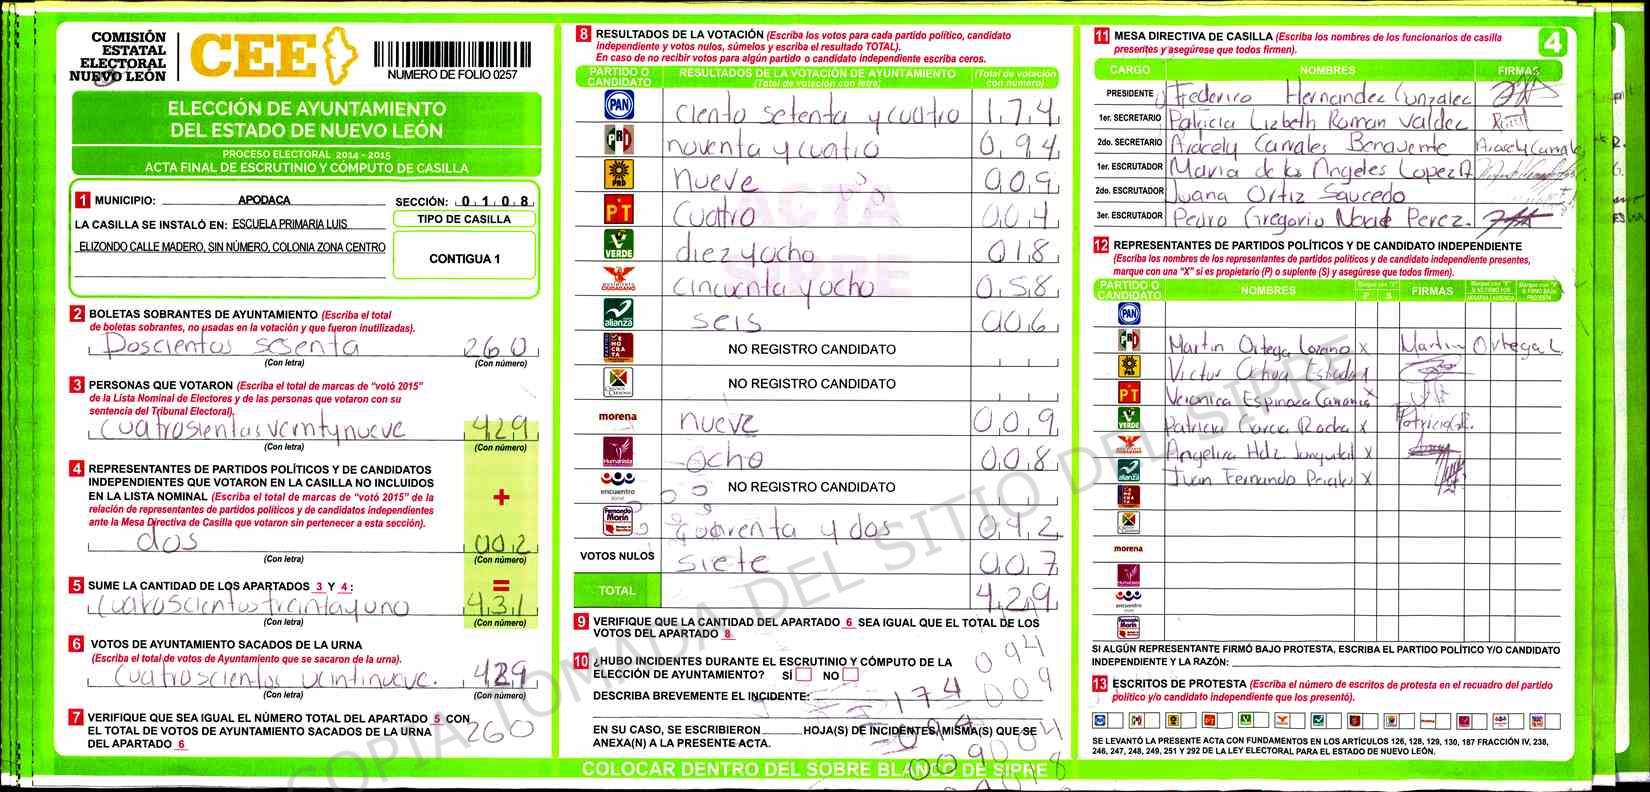 COMISIÓN
ESTATAL
ELECTORAL
NUEVO LEÓN
CEE
NUMERO DE FOLIO 0257
ELECCIÓN DE AYUNTAMIENTO
DEL ESTADO DE NUEVO LEÓN
PROCESO ELECTORAL 2014 - 2015
ACTA FINAL DE ESCRUTINIO Y CÓMPUTO DE CASILLA
1 MUNICIPIO: APODACA SECCIÓN: 0108
LA CASILLA SE INSTALÓ EN: ESCUELA PRIMARIA LUIS
ELIZONDO CALLE MADERO, SIN NÚMERO, COLONIA ZONA CENTRO
TIPO DE CASILLA
CONTIGUA 1
2 BOLETAS SOBRANTES DE AYUNTAMIENTO (Escriba el total
de boletas sobrantes, no usadas en la votación y que fueron inutilizadas).
Doscientos sesenta 260
(Con letra) (Con número)
3 PERSONAS QUE VOTARON (Escriba el total de marcas de "votó 2015"
de la Lista Nominal de Electores y de las personas que votaron con su
sentencia del Tribunal Electoral).
Cuatrosientos veintynueve 429
(Con letra) (Con número)
4 REPRESENTANTES DE PARTIDOS POLÍTICOS Y DE CANDIDATOS
INDEPENDIENTES QUE VOTARON EN LA CASILLA NO INCLUIDOS
EN LA LISTA NOMINAL (Escriba el total de marcas de "votó 2015" de la
relación de representantes de partidos políticos y de candidatos independientes
ante la Mesa Directiva de Casilla que votaron sin pertenecer a esta sección).
+
dos 002
(Con letra) (Con número)
5 SUME LA CANTIDAD DE LOS APARTADOS 3 Y 4: =
Cuatroscientos treintayuno 431
(Con letra) (Con número)
6 VOTOS DE AYUNTAMIENTO SACADOS DE LA URNA
(Escriba el total de votos de Ayuntamiento que se sacaron de la urna).
Cuatroscientos veintinueve. 429
(Con letra) (Con número)
7 VERIFIQUE QUE SEA IGUAL EL NÚMERO TOTAL DEL APARTADO 5 CON
EL TOTAL DE VOTOS DE AYUNTAMIENTO SACADOS DE LA URNA
DEL APARTADO 6
260
8 RESULTADOS DE LA VOTACIÓN (Escriba los votos para cada partido político, candidato
independiente y votos nulos, súmelos y escriba el resultado TOTAL).
En caso de no recibir votos para algún partido o candidato independiente escriba ceros.
PARTIDO O CANDIDATO RESULTADOS DE LA VOTACIÓN DE AYUNTAMIENTO (Total de votación con letra) (Total de votación con número)
PAN ciento setenta y cuatro 174
PRD noventa y cuatro 094
PRD nueve 009
PT cuatro 004
VERDE diez y ocho 018
MOVIMIENTO CIUDADANO cincuenta y ocho 058
alianza seis 006
DEMOCRATA NO REGISTRO CANDIDATO
NO REGISTRO CANDIDATO
morena nueve 009
Humanista ocho 008
encuentro social NO REGISTRO CANDIDATO
Fernando Marín cuarenta y dos 042
VOTOS NULOS siete 007
TOTAL 429
ACTA SIPRE
9 VERIFIQUE QUE LA CANTIDAD DEL APARTADO 6 SEA IGUAL QUE EL TOTAL DE LOS
VOTOS DEL APARTADO 8
10 ¿HUBO INCIDENTES DURANTE EL ESCRUTINIO Y CÓMPUTO DE LA
ELECCIÓN DE AYUNTAMIENTO? SÍ NO
DESCRIBA BREVEMENTE EL INCIDENTE:
EN SU CASO, SE ESCRIBIERON HOJA(S) DE INCIDENTES, MISMA(S) QUE SE
ANEXA(N) A LA PRESENTE ACTA.
094
009
174
004
009
COLOCAR DENTRO DEL SOBRE BLANCO DE SIPRE
11 MESA DIRECTIVA DE CASILLA (Escriba los nombres de los funcionarios de casilla
presentes y asegúrese que todos firmen).
4
CARGO NOMBRES FIRMAS
PRESIDENTE Federico Hernandez Gonzalez
1er. SECRETARIO Patricia Lizbeth Roman Valdez
2do. SECRETARIO Aracely Canales Benavente Aracely Canales
1er. ESCRUTADOR Maria de los Angeles Lopez A
2do. ESCRUTADOR Juana Ortiz Saucedo
3er. ESCRUTADOR Pedro Gregorio Perez.
12 REPRESENTANTES DE PARTIDOS POLÍTICOS Y DE CANDIDATO INDEPENDIENTE
(Escriba los nombres de los representantes de partidos políticos y de candidato independiente presentes,
marque con una "X" si es propietario (P) o suplente (S) y asegúrese que todos firmen).
PARTIDO O CANDIDATO NOMBRES P S FIRMAS
PAN
PRD Martin Ortega Lozano X Martin Ortega L.
PRD Victor Ochoa Estrada
PT Veronica Espinoza X
VERDE Patricia Garcia Rocha X
Angelica Hdz X
alianza Juan Fernando X
morena
Humanista
encuentro social
Fernando Marín
SI ALGÚN REPRESENTANTE FIRMÓ BAJO PROTESTA, ESCRIBA EL PARTIDO POLÍTICO Y/O CANDIDATO
INDEPENDIENTE Y LA RAZÓN:
13 ESCRITOS DE PROTESTA (Escriba el número de escritos de protesta en el recuadro del partido
político y/o candidato independiente que los presentó).
SE LEVANTÓ LA PRESENTE ACTA CON FUNDAMENTOS EN LOS ARTÍCULOS 126, 128, 129, 130, 187 FRACCIÓN IV, 238,
246, 247, 248, 249, 251 Y 292 DE LA LEY ELECTORAL PARA EL ESTADO DE NUEVO LEÓN.
COPIA TOMADA DEL SITIO DEL SIPRE